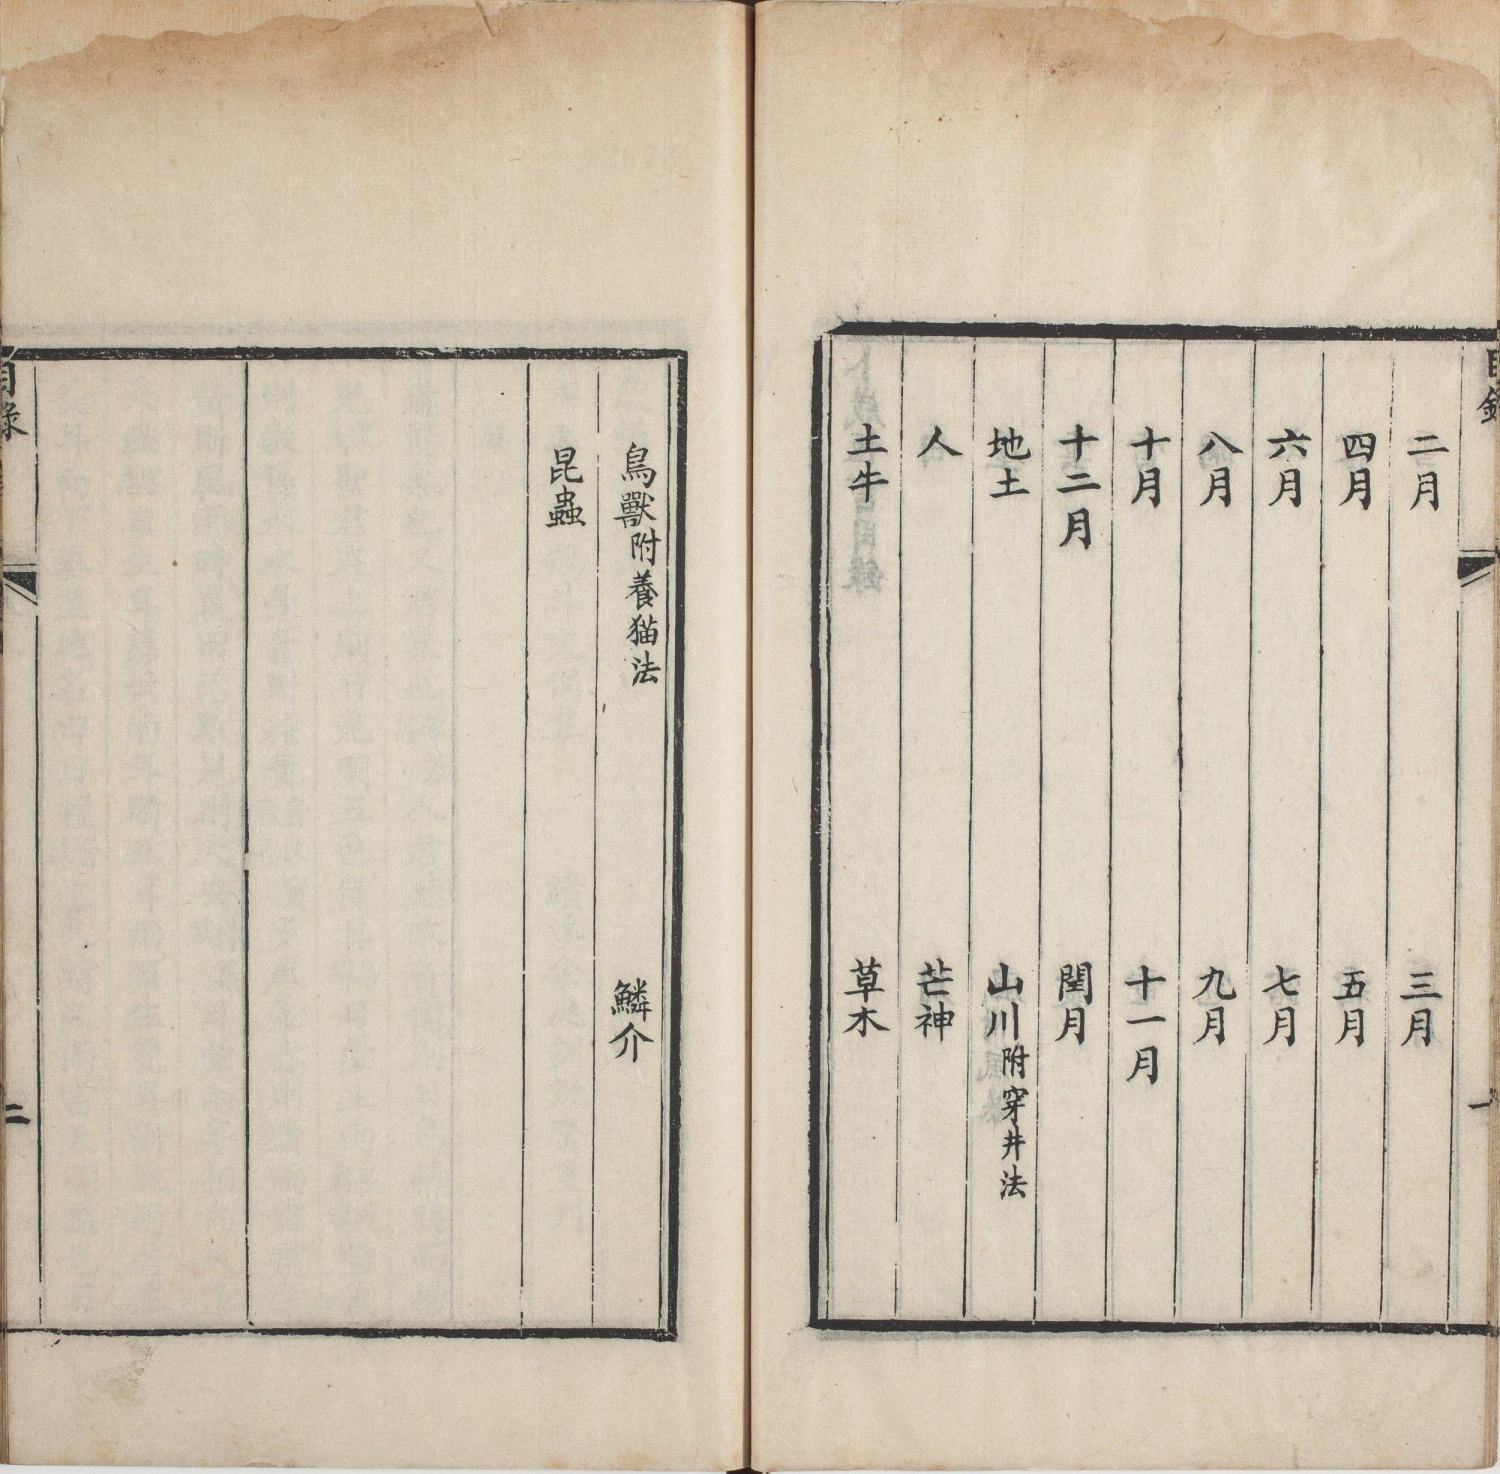 二月　三月
四月　五月
六月　七月
八月　九月
十月　十一月
十二月　閏月
地土　山川附穿井法
人　芒神
土牛　草木
鳥獸附養猫法　鱗介
昆蟲
目錄
二